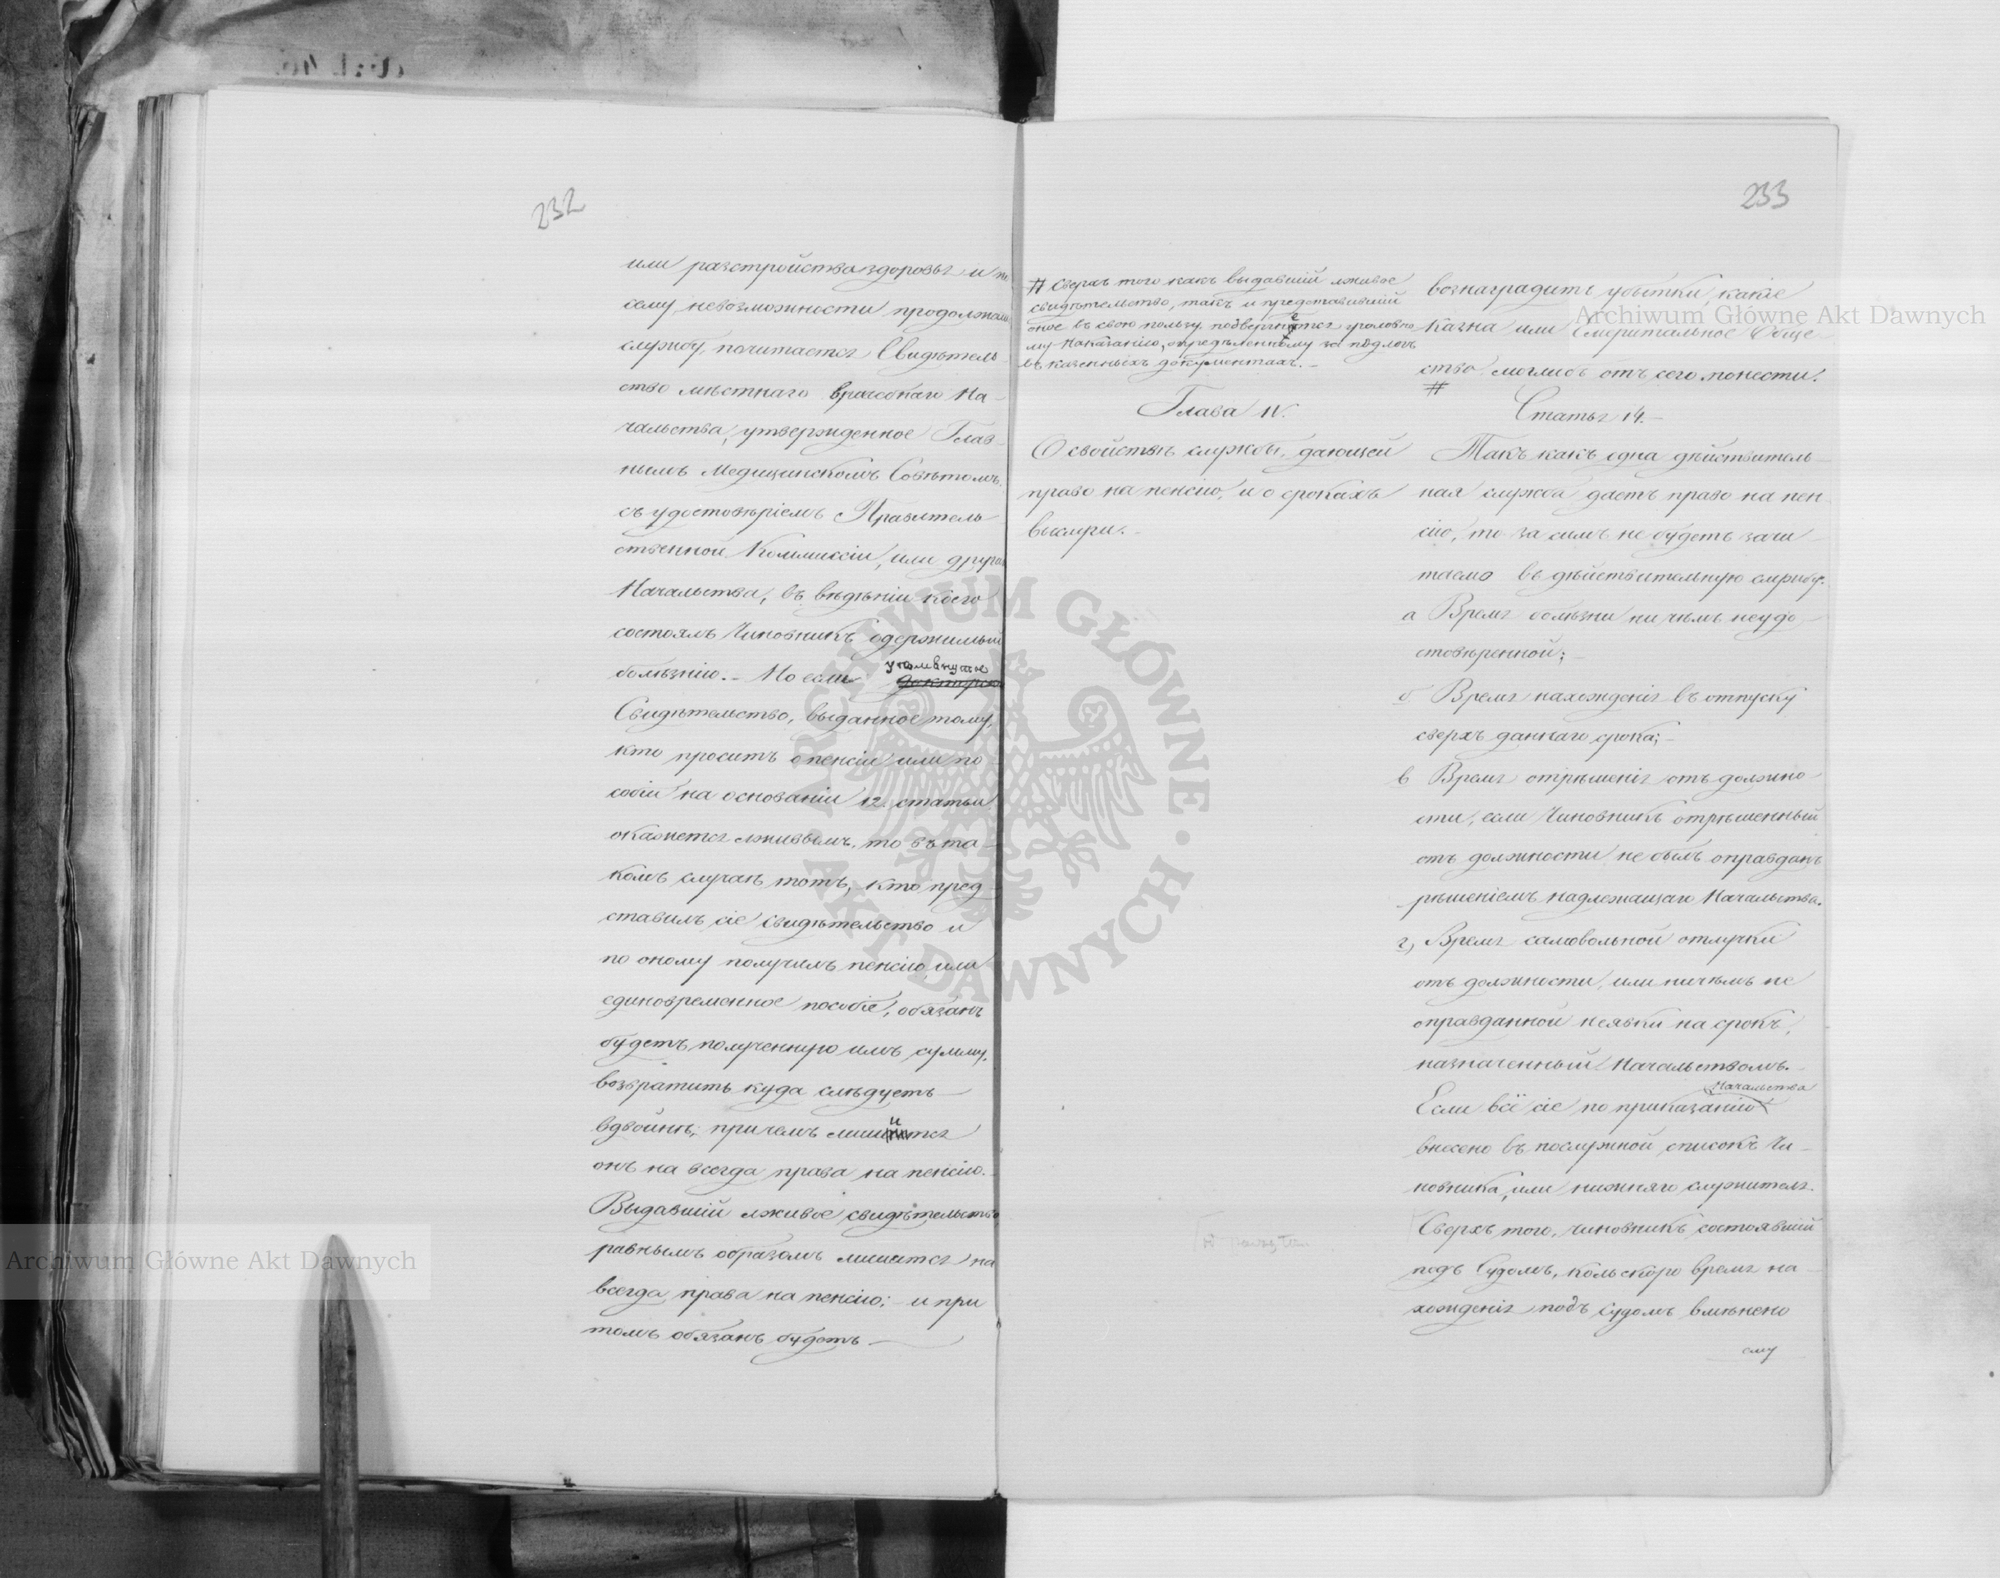 232
или разстройства здоровья и по
сему, невозможности продолжать
службу, почитается Свидѣтель-
ство мѣстнаго врачебнаго На-
чальства, утвержденное Глав-
нымъ Медицинскимъ Совѣтомъ,
съ удостовѣреніемъ Правитель-
ственной Коммиссіи, или другаго
Начальства, въ вѣдѣніи коего
состоялъ Чиновникъ одержимый
упомянутое
болѣзнію. - Но если
Свидѣтельство, выданное тому,
кто проситъ о пенсіи или по-
собіи на основаніи 12. статьи
окажется лживымъ, то въ та-
комъ случаѣ тотъ, кто пред-
ставилъ сіе свидѣтельство и
по оному получилъ пенсію, или
единовременное пособіе, обязанъ
будетъ полученную имъ сумму,
возвратить куда слѣдуетъ
вдвойнѣ; причемъ лишится
онъ на всегда права на пенсію. -
Выдавшій лживое свидѣтельство
равнымъ образомъ лишится на
всегда права на пенсію; - и при
томъ обязанъ будетъ -
233
# Сверхъ того какъ выдавшій лживое
свидѣтельство, такъ и представившій
оное въ свою пользу, подвергнется уголовно
му наказанію, опредѣленному за подлогъ
въ казенныхъ документахъ. -
Глава IV.
О свойствѣ службы, дающей
право на пенсію, и о срокахъ
выслуги. -
вознаградить убытки, какіе
Казна или Эмеритальное Обще-
ство моглибъ отъ сего понести.
#
Статья 14. -
Такъ какъ одна дѣйствитель-
ная служба даетъ право на пен-
сію, то за симъ не будетъ зачи-
таемо въ дѣйствительную службу.
а Время болѣзни ни чѣмъ неудо-
стовѣренной; -
б Время нахожденія въ отпуску
сверхъ даннаго срока; -
в Время отрѣшенія отъ должно-
сти, если Чиновникъ отрѣшенный
отъ должности не былъ оправданъ
рѣшеніемъ надлежащаго Начальства.
г, Время самовольной отлучки
отъ должности, или ничѣмъ не
оправданной неявки на срокъ,
назначенный Начальствомъ. -
Начальства
Если всё сіе по приказанію
внесено въ послужной списокъ Чи-
новника, или нижняго служителя.
Сверхъ того, чиновникъ состоявшій
подъ Судомъ, коль скоро время на-
хожденія подъ судомъ вмѣнено
ему
Archiwum Główne Akt Dawnych
Archiwum Główne Akt Dawnych
ARCHIWUM GŁÓWNE · AKT DAWNYCH ·